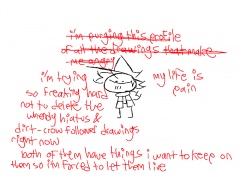 i'm purging this profile
of all the drawings that make
me angry
i'm trying
so freaking hard
not to delete the
unwendy hiatus &
dirt-crow follower drawings
right now
my life is
pain
both of them have things i want to keep on
them so i'm forced to let them live